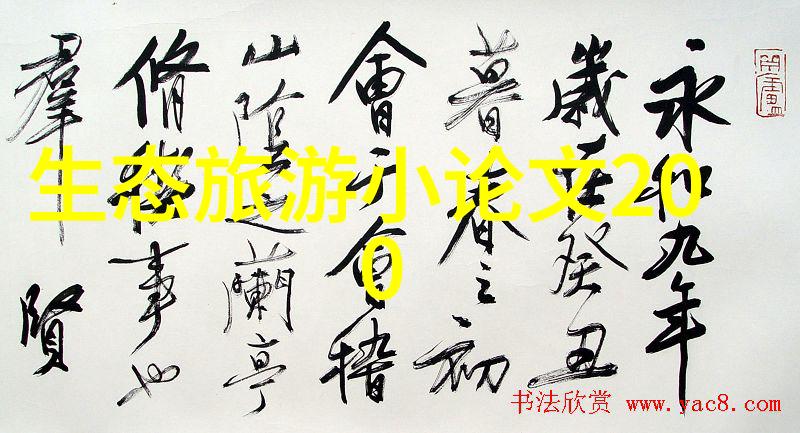 永和九年
歲在癸丑
暮春之初
會于會稽
山陰之蘭亭
脩稧事也
羣賢
生态旅游小论文20
0
书法欣赏 www.yac8.com